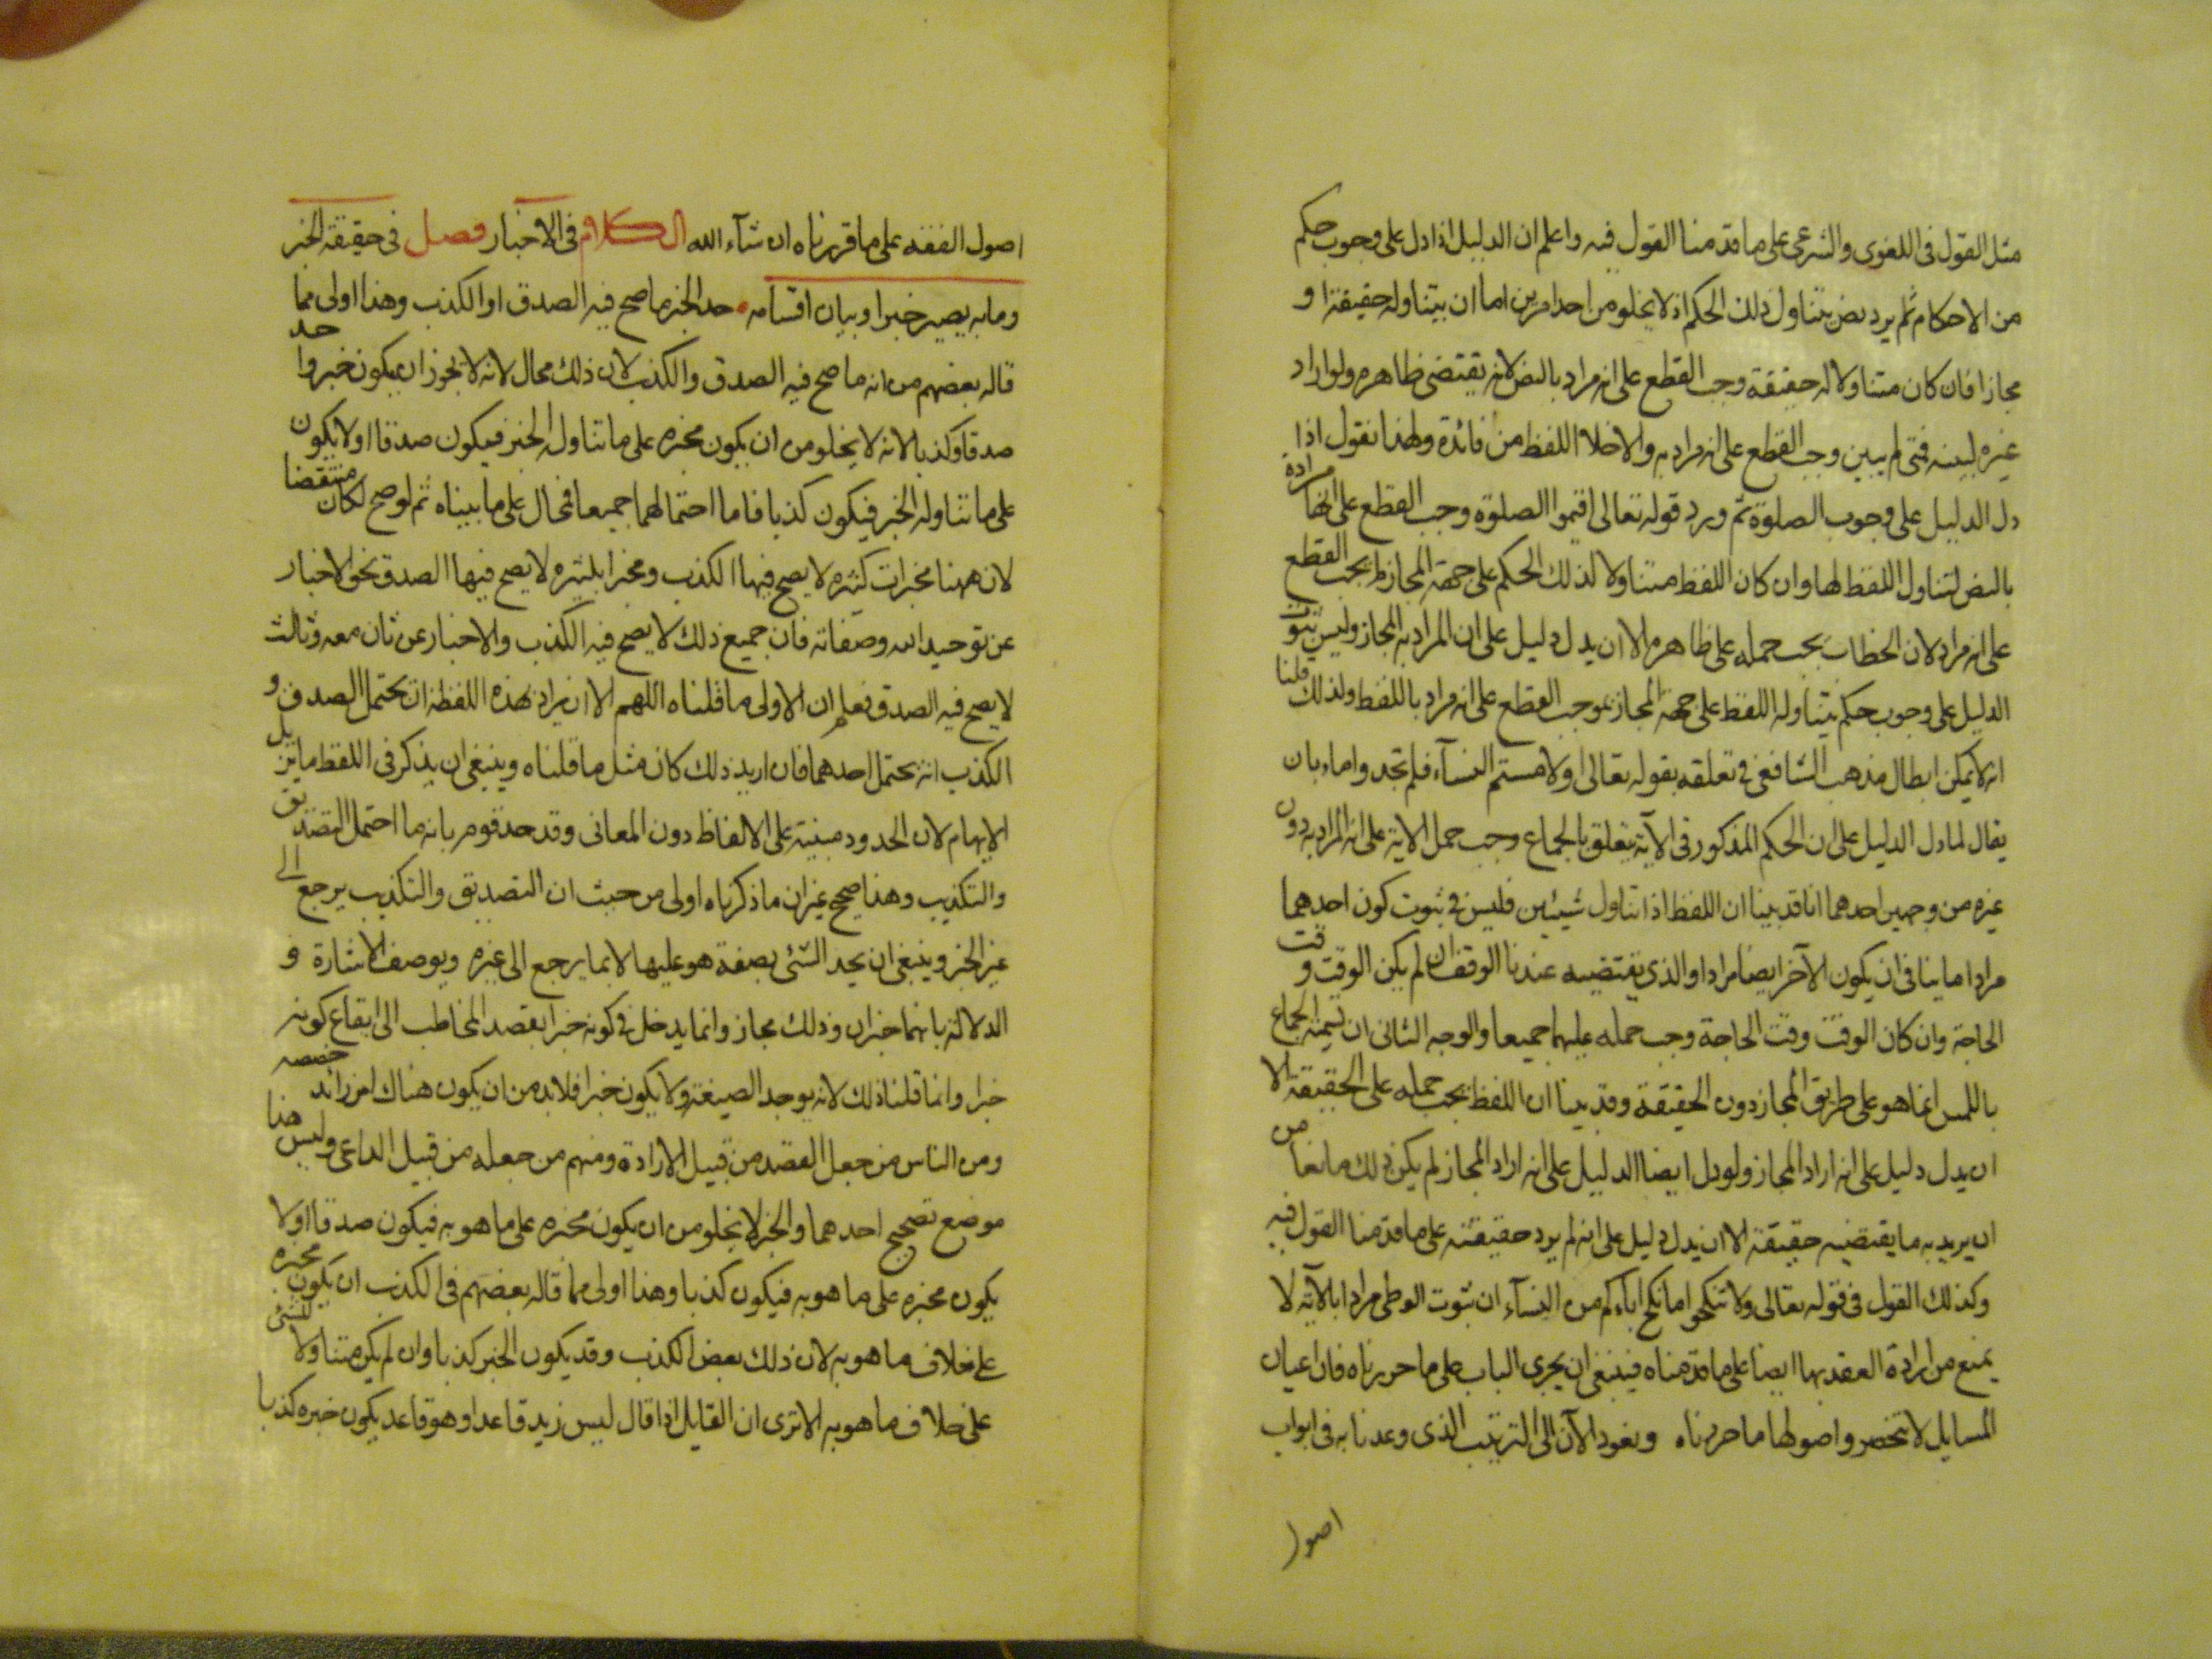 مثل القول فى اللغوى والشرعى على ما قدمنا القول فيه واعلم ان الدليل اذا دل على وجوب حكم
من الاحكام ثم يرد نص يتناول ذلك الحكم اذ لا يخلو من احد امرين اما ان يتناوله حقيقة او
مجازا فان كان متناولا له حقيقة وجب القطع على انه مراد بالنص لانه يقتضى ظاهره ولو اراد
غيره لبينه فمتى لم يبين وجب القطع على انه مراد به والا خلا اللفظ من فائدة ولهذا نقول اذا
دل الدليل على وجوب الصلوة ثم ورد قوله تعالى اقيموا الصلوة وجب القطع على انها مرادة
بالنص لتناول اللفظ لها وان كان اللفظ متناولا لذلك الحكم على جهة المجاز لم يجب القطع
على انه مراد لان الخطاب يجب حمله على ظاهره الا ان يدل دليل على ان المراد به المجاز وليس ثبوت
الدليل على وجوب حكم يتناوله اللفظ على جهة المجاز بموجب القطع على انه مراد باللفظ ولذلك قلنا
انه لا يمكن ابطال مذهب الشافعى فى تعلقه بقوله تعالى اولامستم النسآء فلم تجدوا ماء بان
يقال لما دل الدليل على ان الحكم المذكور فى الآية يتعلق بالجماع وجب حمل الاية على انه المراد به دون
غيره من وجهين احدهما انا قد بينا ان اللفظ اذا تناول شيئين فليس فى ثبوت كون احدهما
مرادا ما ينافى ان يكون الآخر ايضا مرادا والذى يقتضيه عندنا الوقف ان لم يكن الوقت وقت
الحاجة وان كان الوقت وقت الحاجة وجب حمله عليهما جميعا والوجه الثانى ان تسمية الجماع
باللمس انما هو على طريق المجاز دون الحقيقة وقد بينا ان اللفظ يجب حمله على الحقيقة الا
ان يدل دليل على انه اراد المجاز ولو دل ايضا الدليل على انه اراد المجاز لم يكن ذلك مانعا من
ان يريد به ما يقتضيه حقيقة الا ان يدل دليل على انه لم يرد حقيقته على ما قدمنا القول فيه
وكذلك القول فى قوله تعالى ولا تنكحوا ما نكح اباءكم من النسآء ان ثبوت الوطى مرادا بالآية لا
يمنع من ارادة العقد بها ايضا على ما قدمناه فينبغى ان يجرى الباب على ما حررناه فان اعيان
المسايل لا تنحصر واصولها ما حررناه ونعود الآن الى الترتيب الذى وعدنا به فى ابواب
اصول
اصول الفقه على ما قررناه ان شآء الله الكلام فى الاخبار فصل فى حقيقة الخبر
وما به يصير خبرا وبيان اقسامه حد الخبر ما صح فيه الصدق او الكذب وهذا اولى مما
قاله بعضهم من انه ما صح فيه الصدق والكذب لان ذلك محال لانه لا يجوز ان يكون خبر واحد
صدقا وكذبا لانه لا يخلو من ان يكون مخبره على ما تناوله الخبر فيكون صدقا او لا يكون
على ما تناوله الخبر فيكون كذبا فاما احتمالهما جميعا فمحال على ما بيناه ثم لو صح لكان منتقضا
لان ههنا مخبرات كثيرة لا يصح فيها الكذب ومخبرا كثيرة لا يصح فيها الصدق نحو الاخبار
عن توحيد الله وصفاته فان جميع ذلك لا يصح فيه الكذب والاخبار عن ثان معه وثالث
لا يصح فيه الصدق فعلم ان الاولى ما قلناه اللهم الا ان يراد بهذه اللفظة ان يحتمل الصدق و
الكذب انه يحتمل احدهما فان اريد ذلك كان مثل ما قلناه وينبغى ان يذكر فى اللفظ ما يزيل
الابهام لان الحدود مبنية على الالفاظ دون المعانى وقد حد قوم بانه ما احتمل التصديق
والتكذيب وهذا صحيح غير ان ما ذكرناه اولى من حيث ان التصديق والتكذيب يرجع الى
غير الخبر وينبغى ان يحد الشئى بصفة هو عليها لا بما يرجع الى غيره ويوصف الاشارة و
الدلالة بانهما خبران وذلك مجاز وانما يدخل فى كونه خبرا بقصد المخاطب الى ايقاع كونه
خبرا وانما قلنا ذلك لانه يوجد الصيغة ولا يكون خبرا فلا بد من ان يكون هناك امر زائد خصصه
ومن الناس من جعل القصد من قبيل الارادة ومنهم من جعله من قبيل الداعى وليس هنا
موضع تصحيح احدهما والخبر لا يخلو من ان يكون مخبره على ما هو به فيكون صدقا او لا
يكون مخبره على ما هو به فيكون كذبا وهذا اولى مما قاله بعضهم فى الكذب ان يكون مخبره
على خلاف ما هو به لان ذلك بعض الكذب وقد يكون الخبر كذبا وان لم يكن متناولا للشئى
على خلاف ما هو به الا ترى ان القايل اذا قال ليس زيد قاعدا وهو قاعد يكون خبره كذبا